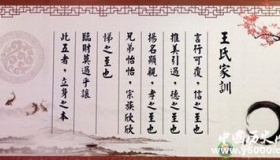 王氏家訓
言行可覆，信之至也
推美引過，德之至也
揚名顯親，孝之至也
兄弟怡怡，宗族欣欣
悌之至也
臨財莫過乎讓
此五者，立身之本